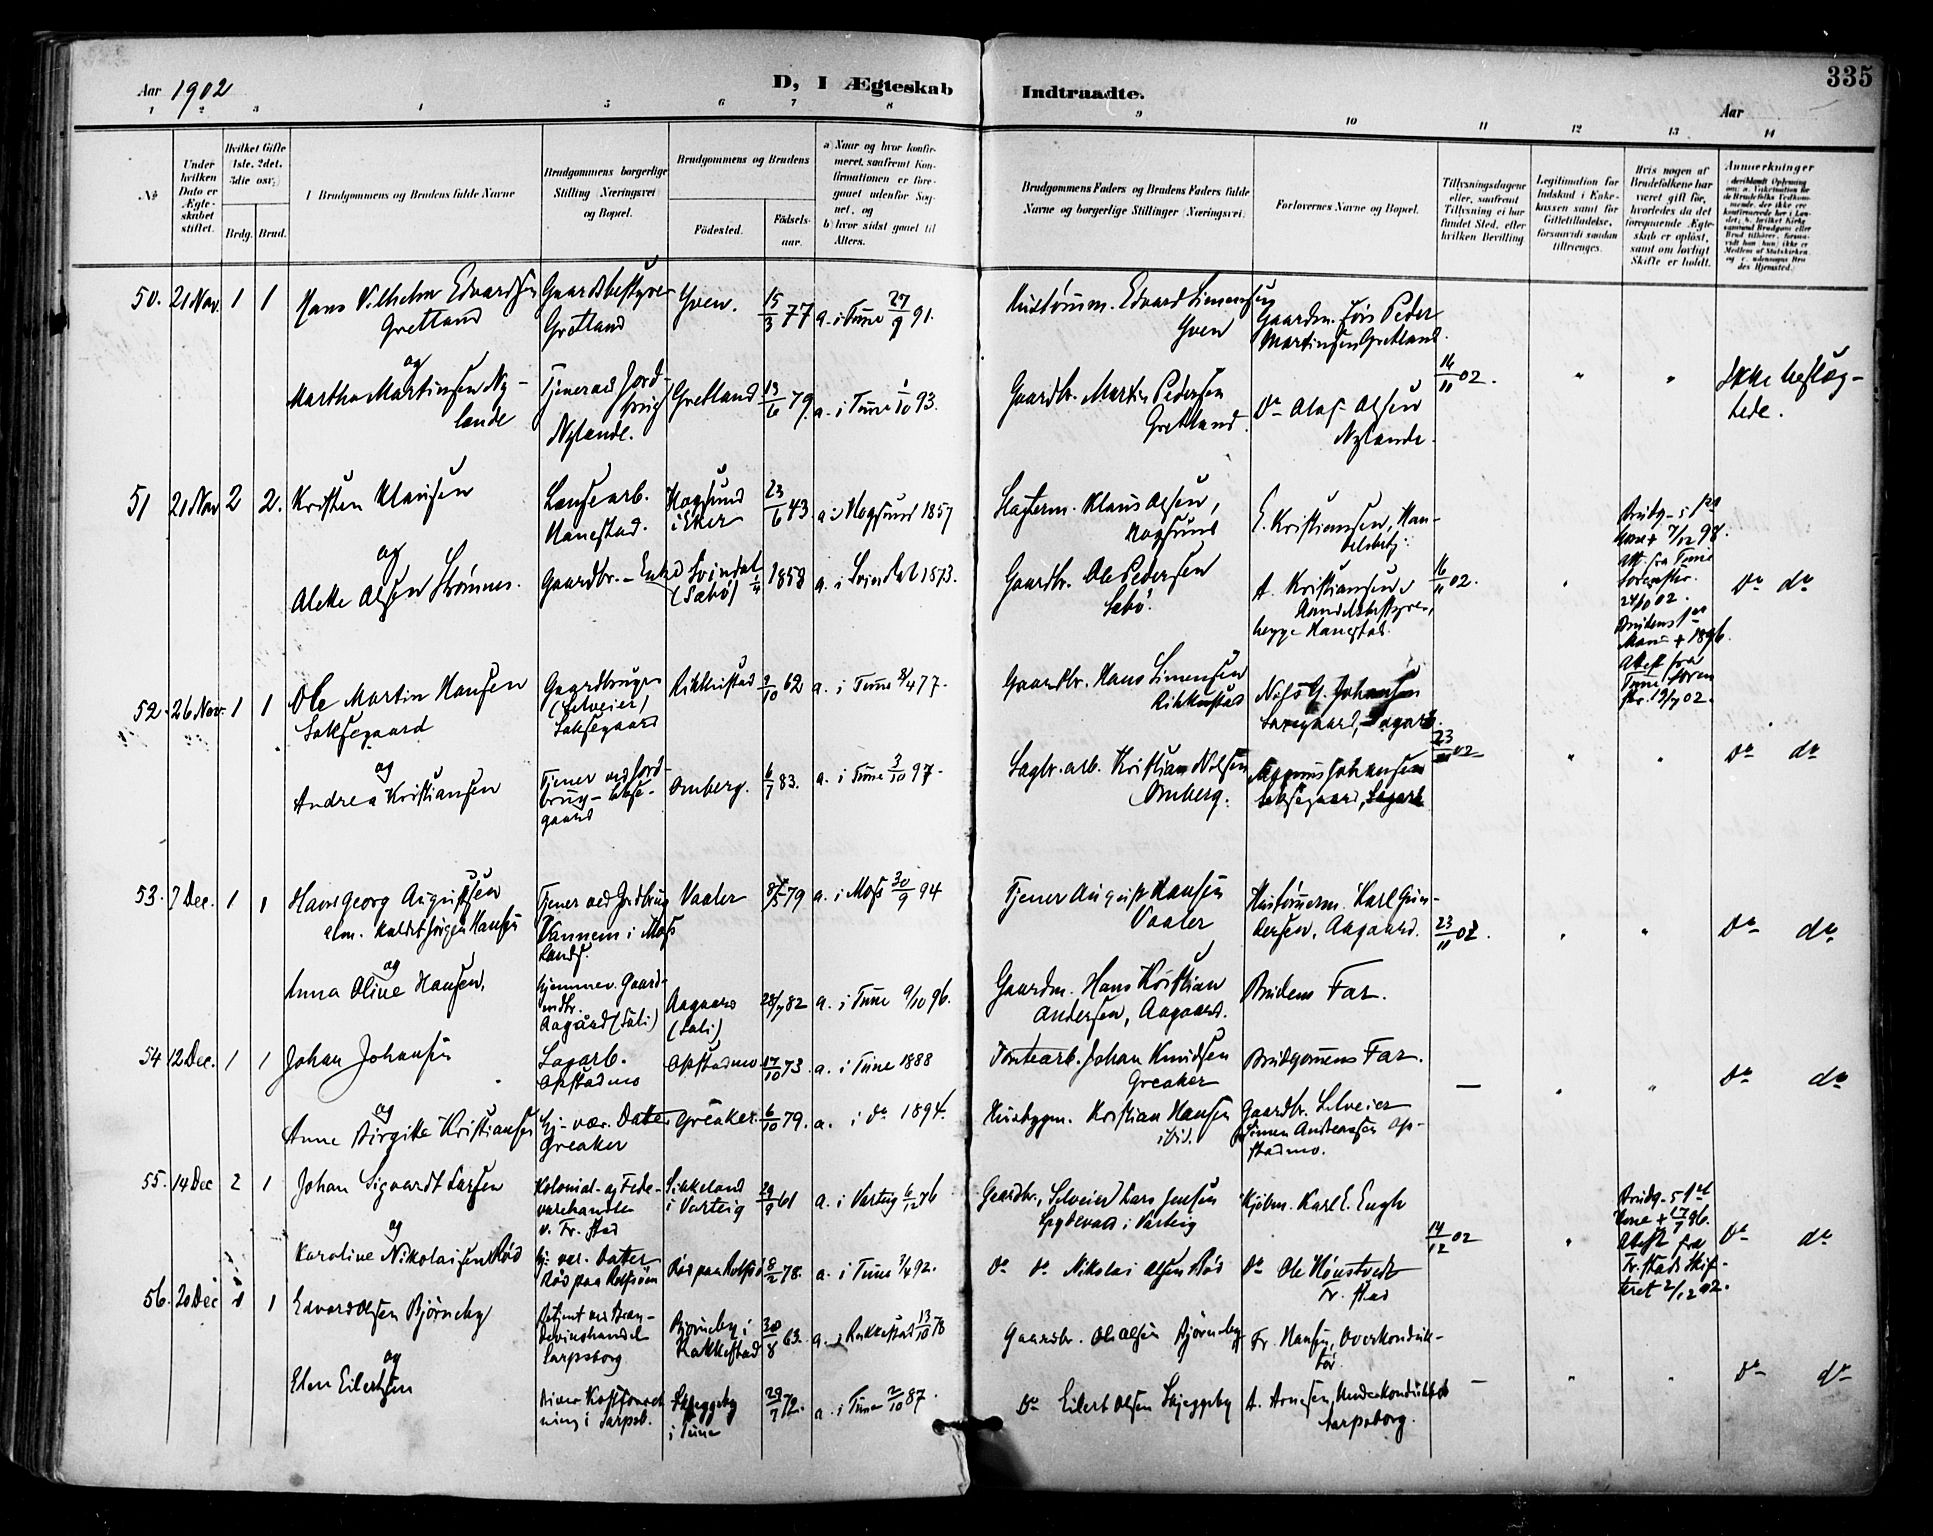 335
Aar 1902
D, I Ægteskab Indtraadte.
Aar
1 2 3 4 5 6 7 8 9 10 11 12 13 14
No
Under hvilken Dato er Ægteskabet stiftet.
Hvilket Gifte 1ste, 2det, 3die osv.
Brdg. Brud.
Brudgommens og Brudens fulde Navne
Brudgommens borgerlige Stilling (Næringsvei) og Bopæl.
Brudgommens og Brudens
Fødested.
Fødselsaar.
a) Naar og hvor konfirmeret, saafremt Konfirmationen er foregaaet udenfor Sognet, og
b) hvor sidst gaaet til Alters.
Brudgommens Faders og Brudens Faders fulde Navne og borgerlige Stillinger (Næringsvei).
Forlovernes Navne og Bopæl.
Tillysningsdagene eller, saafremt Tillysning ei har fundet Sted, efter hvilken Bevilling
Legitimation for Indskud i Enkekassen samt for Giftetilladelse, forsaavidt saadan tiltrænges.
Hvis nogen af Brudefolkene har været gift før, hvorledes da det foregaaende Ægteskab er opløst, samt om lovligt Skifte er holdt.
Anmerkninger
50. 21 Nov. 1 1 Hans Vilhelm Edvardsen Gretland
Gaardsbestyrer Gretland
Yven. 15/3 77 a. i Tune 27/9 91.
Husbømm. Edvard Simensen Yven
Gaardm. Jørs Peder Martinsen Gretland.
og
Martha Martinsen Nylande
Tjener ved Jordbrug Nylande.
Gretland 13/6 79. a. i Tune 1/10 93.
Gaardbr. Martin Pedersen Gretland.
Do Olaf Olsen Nylande.
16/11 02. " " Ikke beslægtede.
51 21 Nov 2 2. Kristen Klausen
Lensearb. Hanestad.
Hogsund i Eker 23/6 43. a. i Hogsund 1857
Slagterm. Klaus Olsen, Hogsund
E. Kristiansen, Handelsbetj.
Brudg.s 1ste Kone + 7/12 98. Att. fra Tune Sorenskr. 24/10 02.
og
Alette Olsen Strømnes.
Gaardbr.-Enke
Svindal (Sæbø) 1/4 1858 a. i Svindal 1873.
Gaardbr. Ole Pedersen Sæbø.
A. Kristiansen, Handelsbestyrer, begge Hanestad.
16/11 02. " Do do
Brudens 1ste Mand + 1896. Attest fra Tune Sorenskr. 19/9 02.
52. 26 Nov. 1 1 Ole Martin Hansen Laksegaard
Gaardbruger (Selveier) Laksegaard
Rikkustad 9/10 62 a. i Tune 8/4 77.
Gaardbr. Hans Simensen Rikkustad
Nils G. Johansen
og
Andrea Kristiansen
Tjener ved Jordbrug - Laksegaard
Omberg. 6/7 83. a. i Tune 3/10 97.
Sagbr. arb. Kristian Nilsen Omberg.
Magnus Johansen Laksegaard, Sagarb.
23/11 02 " " Do do
53. 7 Dec. 1 1 Hans Georg Augustsen alm. kaldet Jørgen Hansen
Tjener ved Jordbrug Vannem i Moss Lands.
Vaaler 8/5 79 a. i Moss 30/9 94
Tjener August Hansen Vaaler
Husbømm. Karl Gundersen, Aagaard.
23/11 02. " " Do do
og
Anna Oline Hansen,
hjemmev. Gaardmdtr. Aagård (Sali)
Aagaard (Sali) 28/7 82 a. i Tune 9/10 96.
Gaardm. Hans Kristian Andersen, Aagaard.
Brudens Far.
54 12 Dec. 1 1 Johan Johansen
Sagarb. Opstadmo
Opstadmo 17/10 73. a. i Tune 1888
Tomtearb. Johan Knudsen Greaker
Brudgommens Far.
— " " Do do
og
Anne Birgitte Kristiansen
hj. vær. Datter Greaker
Greaker. 6/10 79. a. i do 1894.
Husbygm. Kristian Hansen ibid.
Gaardbr. Selveier Simen Andreassen Opstadmo.
55. 14 Dec 2 1 Johan Sigvardt Larsen
Kolonial- og Fedevarehandler v. Fr.stad
Sikkeland i Varteig 29/9 61 a. i Varteig 6/12 76
Gaardbr., Selveier Lars Jensen Spydevold i Varteig
Kjøbm. Karl E. Engh
14/12 02 " Brudg.s 1ste Kone + 17/7 96. Attest fra Fr.stads Skifteret 2/12 02. Do do
og
Karoline Nikolaisen Rød
hj. vær. Datter Rød paa Rolfsøen
Rød paa Rolfsø 8/2 78. a. i Tune 3/4 92.
Do Do Nikolai Olsen Rød
Do Ole Hønstvedt Fr.stad
56. 20 Dec 1 1 Edvard Olsen Bjørneby
Betjent ved Brændevinshandel Sarpsborg
Bjørneby i Rakkestad 30/8 63. a. i Rakkestad 13/10 78
Gaardbr. Ole Olsen Bjørneby
Fr. Hansen, Overkonduktør.
og
Elen Eilertsen
Driver Kostforretning i Sarpsb.
Skjeggeby i Tune 29/7 72. a. i Tune 2/10 87.
Do Eilert Olsen Skjeggeby
A. Arnesen, Underkonduktør Sarpsborg.
— " " Do do